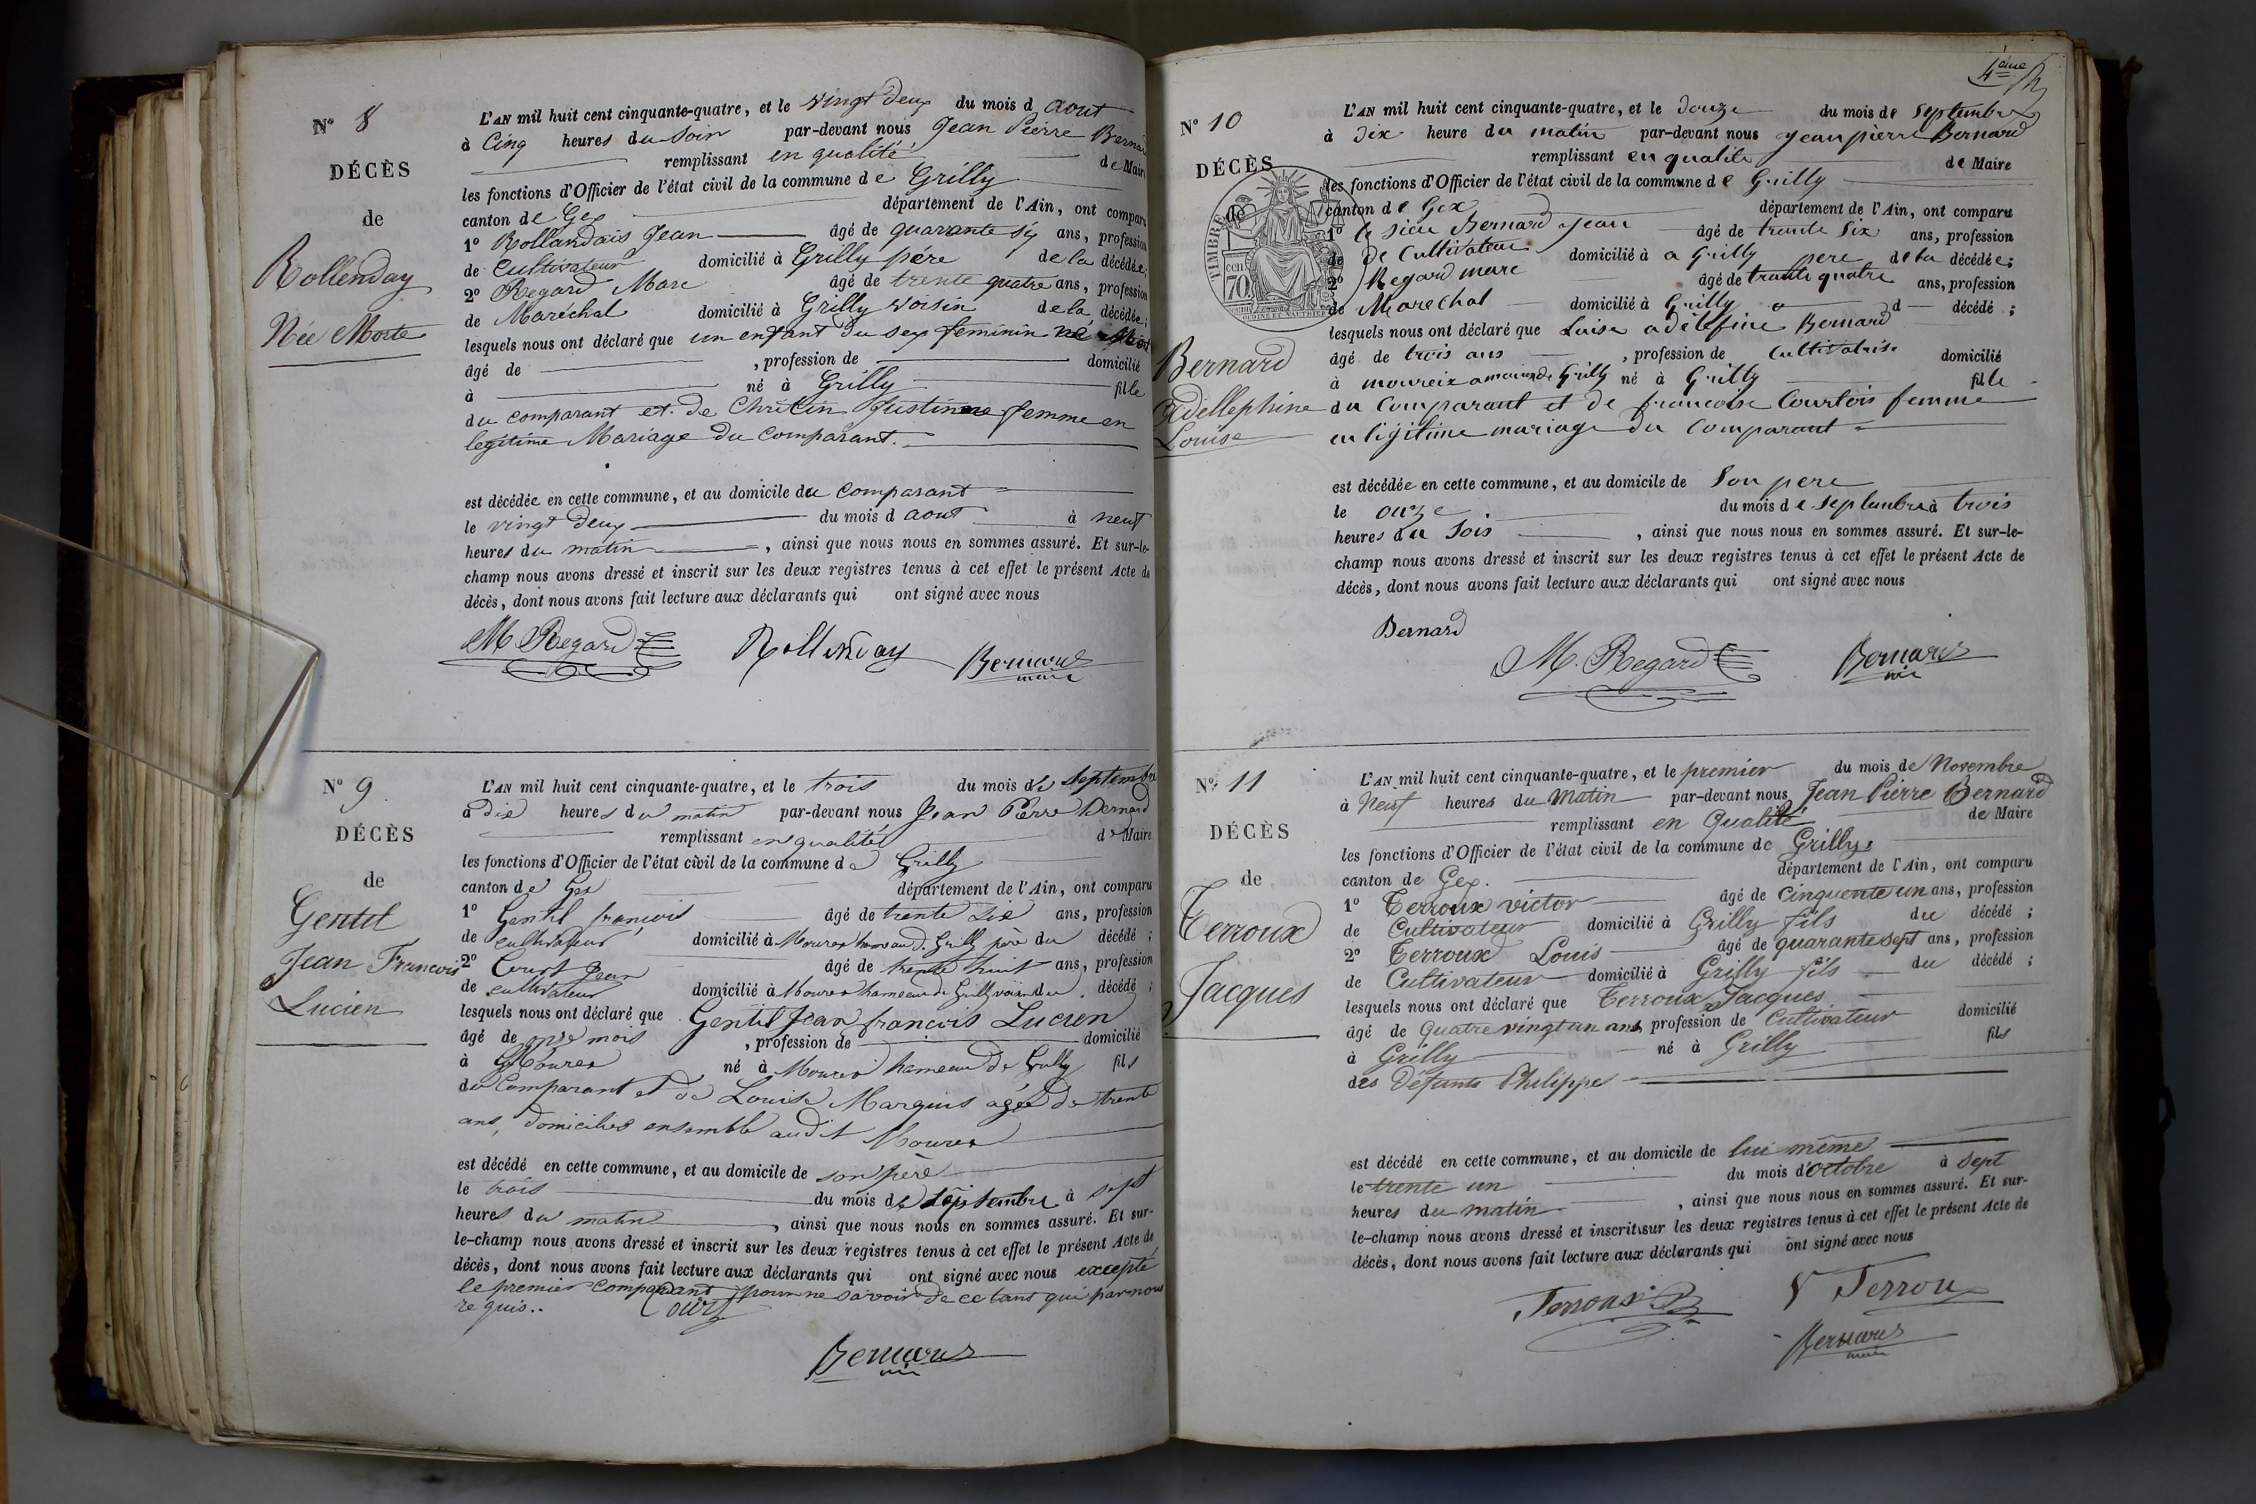 N° 8
DÉCÈS
de
Rollenday
Née Morte
L'AN mil huit cent cinquante-quatre, et le vingt deux du mois d aout
à Cinq heures du Soir par-devant nous Jean Pierre Bernard
remplissant en qualité de Maire
les fonctions d'Officier de l'état civil de la commune de Grilly
canton de Gex département de l'Ain, ont comparu
1° Rollandais Jean âgé de quarante six ans, profession
de Cultivateur domicilié à Grilly père de la décédée;
2° Regard Marc âgé de trente quatre ans, profession
de Maréchal domicilié à Grilly voisin de la décédée;
lesquels nous ont déclaré que un enfant du sex feminin né mort
âgé de , profession de domicilié
à né à Grilly fille
du comparant et de Chrétin Justine femme en
legitime Mariage du Comparant.
est décédée en cette commune, et au domicile du comparant
le vingt deux du mois d aout à neuf
heures du matin , ainsi que nous nous en sommes assuré. Et sur-le-
champ nous avons dressé et inscrit sur les deux registres tenus à cet effet le présent Acte de
décès, dont nous avons fait lecture aux déclarants qui ont signé avec nous
M Regard Rollenday Bernard
maire
N° 9
DÉCÈS
de
Gentil
Jean Francois
Lucien
L'AN mil huit cent cinquante-quatre, et le trois du mois de Septembre
à dix heures du matin par-devant nous Jean Pierre Bernard
remplissant en qualité de Maire
les fonctions d'Officier de l'état civil de la commune de Grilly
canton de Gex département de l'Ain, ont comparu
1° Gentil françois âgé de trente six ans, profession
de cultivateur domicilié à Mourex hameau de Grilly père du décédé;
2° Court Jean âgé de trente huit ans, profession
de cultivateur domicilié à Mourex hameau de Grilly voisin du décédé;
lesquels nous ont déclaré que Gentil Jean francois Lucien
âgé de onze mois , profession de domicilié
à Mourex né à Mourex hameau de Grilly fils
du Comparant et de Louise Marquis agée de trente
ans, domiciliés ensemble audit Mourex
est décédé en cette commune, et au domicile de son père
le trois du mois de septembre à sept
heures du matin , ainsi que nous nous en sommes assuré. Et sur-
le-champ nous avons dressé et inscrit sur les deux registres tenus à cet effet le présent Acte de
décès, dont nous avons fait lecture aux déclarants qui ont signé avec nous excepté
le premier comparant pour ne savoir de ce tant qué par nous
requis..
Court
Bernard
4ème
N° 10
DÉCÈS
de
TIMBRE
70
Bernard
Adellephine
Louise
L'AN mil huit cent cinquante-quatre, et le douze du mois de septembre
à Dix heure du matin par-devant nous Jean pièrre Bernard
remplissant en qualite de Maire
les fonctions d'Officier de l'état civil de la commune de Grilly
canton de Gex département de l'Ain, ont comparu
1° le sieu Bernard Jean âgé de trente Six ans, profession
de De Cultivateur domicilié à a Grilly pere de la décédée;
2° Regard marc âgé de trante quatre ans, profession
de Marechal domicilié à Grilly d décédé;
lesquels nous ont déclaré que Luise adélefine Bernard
âgé de trois ans , profession de Cultivatrise domicilié
à né à Grilly fille
du Comparant et de francoise Courtois femme
en ligitime mariage du Comparant
est décédée en cette commune, et au domicile de Son pere
le onze du mois de Septembre à trois
heures du Sois , ainsi que nous nous en sommes assuré. Et sur-le-
champ nous avons dressé et inscrit sur les deux registres tenus à cet effet le présent Acte de
décès, dont nous avons fait lecture aux déclarants qui ont signé avec nous
Bernard
M. Regard Bernard
N° 11
DÉCÈS
de
Terroux
Jacques
L'AN mil huit cent cinquante-quatre, et le premier du mois de Novembre
à Neuf heures du Matin par-devant nous Jean Pierre Bernard
remplissant en Qualité de Maire
les fonctions d'Officier de l'état civil de la commune de Grilly
canton de Gex. département de l'Ain, ont comparu
1° Terroux victor âgé de Cinquente un ans, profession
de Cultivateur domicilié à Grilly fils du décédé;
2° Terroux Louis âgé de quarante sept ans, profession
de Cultivateur domicilié à Grilly fils du décédé;
lesquels nous ont déclaré que Terroux Jacques
âgé de Quatre vingt un ans profession de Cultivateur domicilié
à Grilly né à Grilly fils
des Défunts Philippes
est décédé en cette commune, et au domicile de lui même
le trente un du mois d'Octobre à Sept
heures du matin , ainsi que nous nous en sommes assuré. Et sur-
le-champ nous avons dressé et inscrit sur les deux registres tenus à cet effet le présent Acte de
décès, dont nous avons fait lecture aux déclarants qui ont signé avec nous
Terroux V Terroux
Bernard
maire